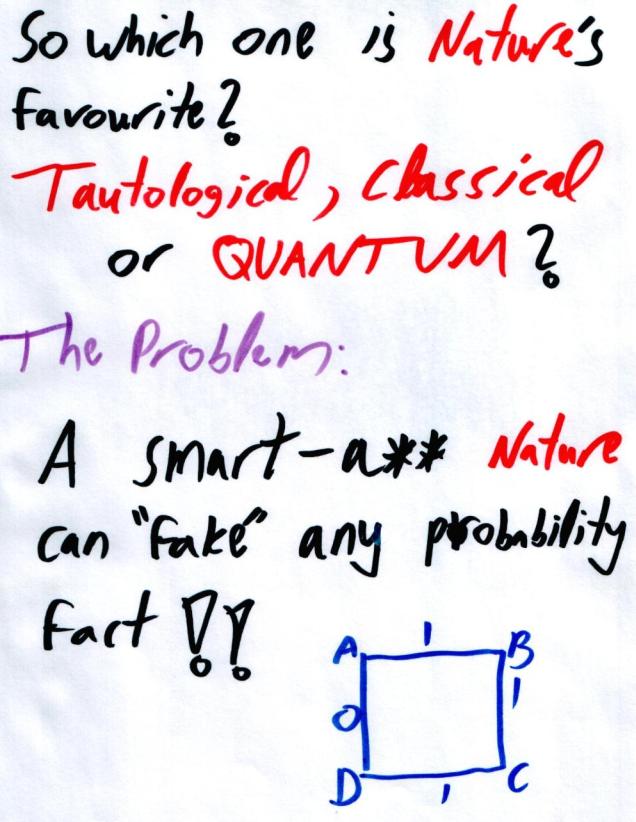 So which one is Nature's
favourite?
Tautological, Classical
or QUANTUM?
The Problem:
A smart-a** Nature
can "fake" any probability
fact !!
A 1 B
0 1
D 1 C